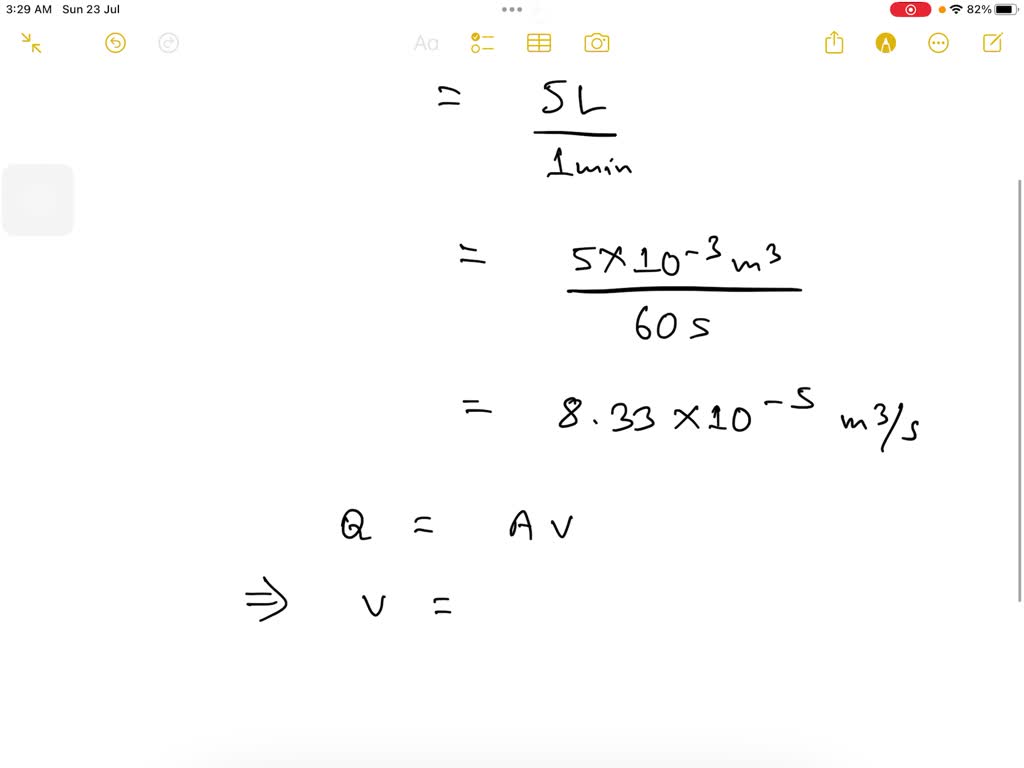 3:29 AM Sun 23 Jul 82%
Aa
= 5L
1min
= 5×10⁻³ m³
60 s
= 8.33 ×10⁻⁵ m³/s
Q = A V
⇒ V =